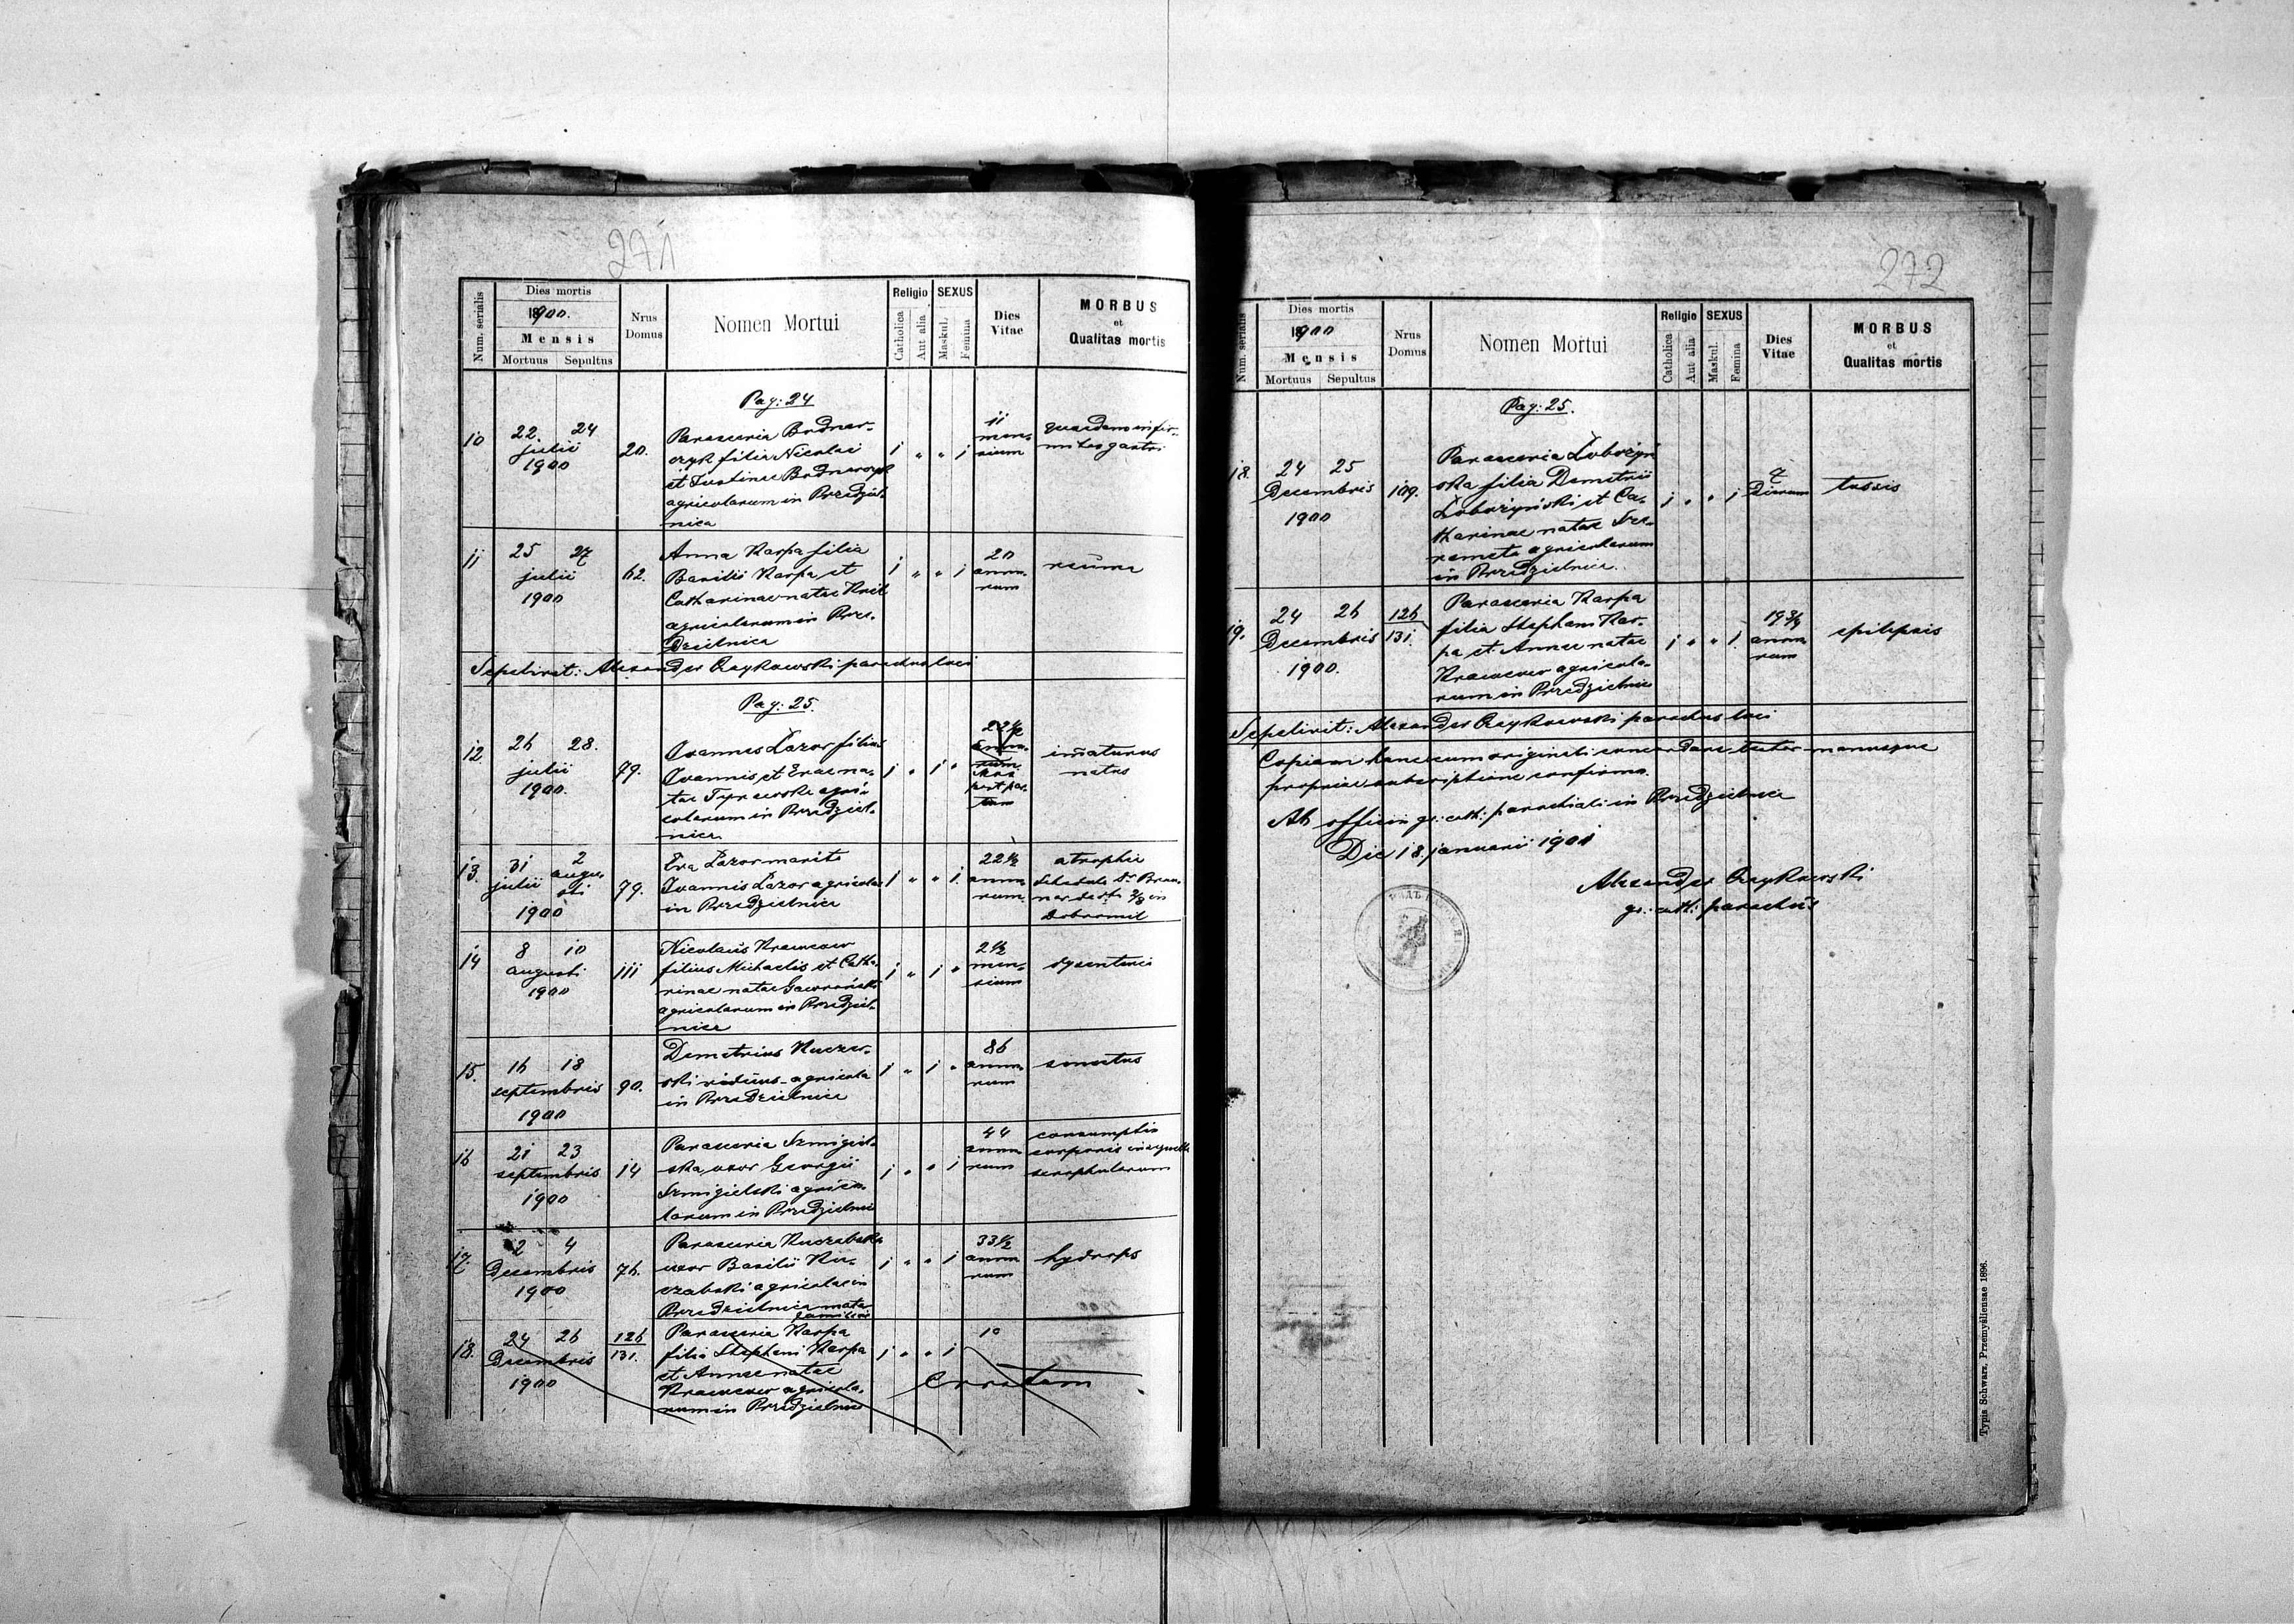 271
Num. serialis
Dies mortis
1900.
Mensis
Mortuus Sepultus
Nrus Domus
Nomen Mortui
Religio
Catholica
Aut alia
SEXUS
Maskul.
Femina
Dies Vitae
MORBUS
et
Qualitas mortis
Pag: 24
10 22. 24
julii
1900
20.
Parascevia Bodnar-
czyk filia Nicolai
et Justinae Bodnarczyk
agricolarum in Przedziel-
nica
1 " " 1
11
men-
sium
quaedam infir-
mitas gastri
11 25 27
julii
1900
62.
Anna Karpa filia
Basilii Karpa et
Catharinae natae Kril
agricolarum in Prze-
dzielnica
1 " " 1
20
anno-
rum
reuma
Sepelivit: Alexander Czajkowski parochus loci
Pag: 25.
12 26 28.
julii
1900.
79.
Ioannes Łazor filius
Ioannis et Evae na-
tae
agri-
colarum in Przedziel-
nica
1 " 1 "
22 1/2
anno-
rum
post par-
tum
immaturus
natus
13. 31 2
julii augu-
sti
1900
79.
Eva Łazor marita
Ioannis Łazor agricolae
in Przedzielnica
1 " " 1
22 1/2
anno-
rum
atrophia
Schedula Dr
in
Dobromil
14 8 10
augusti
1900
111
Nicolaus Krawcow
filius Michaelis et Catha-
rinae natae
agricolarum in Przedziel-
nica
1 " 1 "
2 1/2
men-
sium
dysenteria
15. 16 18
septembris
1900
90.
Demetrius Kuczaw-
ski viduus - agricola
in Przedzielnica
1 " 1 "
86
anno-
rum
senectus
16 21 23
septembris
1900
14
Parascevia Szmigiel-
ska uxor Georgii
Szmigielski agrico-
larum in Przedzielnica
1 " " 1
44
anno-
rum
consumptio
corporis in sequella
scrophularum
17. 2 4
Decembris
1900
76.
Parascevia Kuczabska
uxor Basilii Ku-
czabski agricolae in
Przedzielnica nata
1 " " 1
33 1/2
anno-
rum
hydrops
18. 24 26
Decembris
1900
126
131.
Parascevia Karpa
filia Stephani Karpa
et Annae natae
Krawcow agricola-
rum in Przedzielnica
1 " " 1
19
Erratum
272
Num. serialis
Dies mortis
1900
Mensis
Mortuus Sepultus
Nrus Domus
Nomen Mortui
Religio
Catholica
Aut alia
SEXUS
Maskul.
Femina
Dies Vitae
MORBUS
et
Qualitas mortis
Pag: 25.
18. 24 25
Decembris
1900
109.
Parascevia Łobożyń
ska filia Demetrii
Łobożyński et Ca-
tharinae natae Sze-
remeta agricolarum
in Przedzielnica.
1 " " 1
7
Dierum
tussis
19. 24 26
Decembris
1900.
126
131.
Parascevia Karpa
filia Stephani Kar-
pa et Annae natae
Krawcow agricola-
rum in Przedzielnica
1 " " 1.
19 3/4
anno
rum
epilepsis
Sepelivit: Alexander Czajkowski parochus loci
Copiam hancce cum originali concordare testor manuque
propriae subscriptione confirmo.
Ab officio gr: cath: parochiali in Przedzielnica
Die 18. januarii 1901
Alexander Czajkowski
gr: cath: parochus
Typis Schwarz. Przemyśliensae 1896.